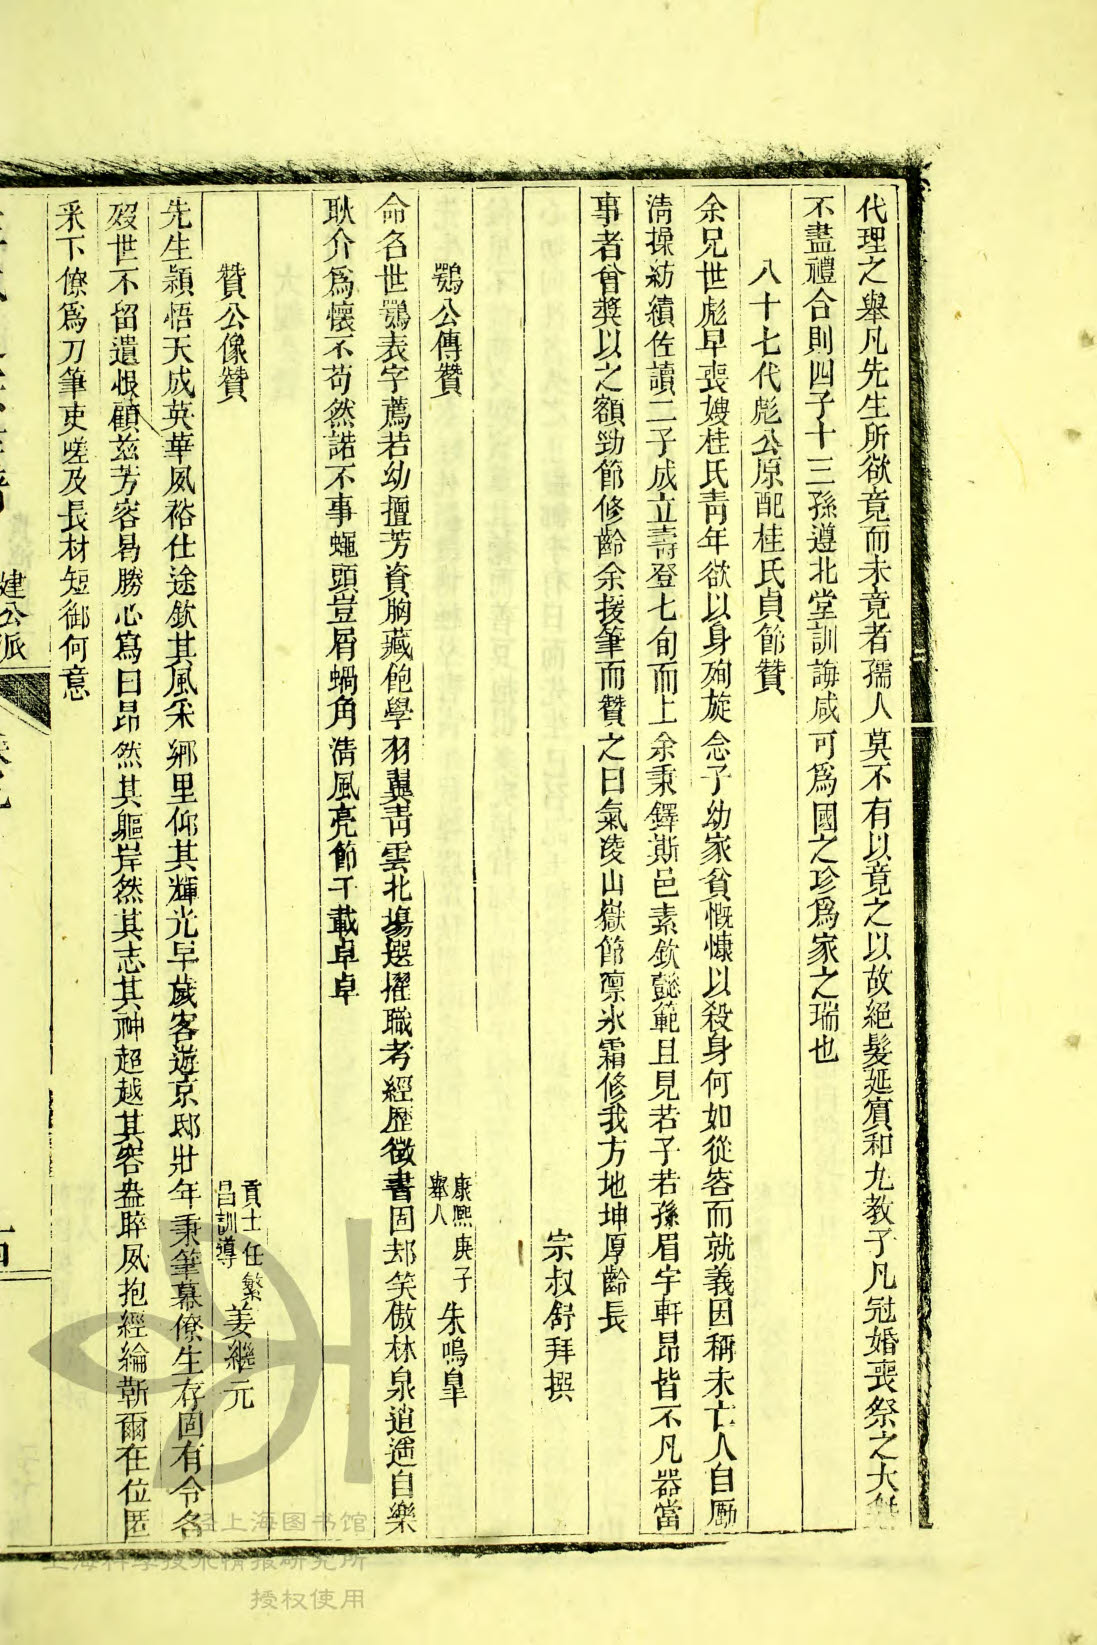 代理之舉凡先生所欲竟而未竟者孺人莫不有以竟之以故絕髮延賓和九教子凡冠婚喪祭之大無
不盡禮合則四子十三孫遵北堂訓誨咸可爲國之珍爲家之瑞也
八十七代彪公原配桂氏貞節贊
余兄世彪早喪嫂桂氏靑年欲以身殉旋念子幼家貧慨慷以殺身何如從容而就義因稱未亡人自勵
淸操紡績佐讀二子成立壽登七旬而上余秉鐸斯邑素欽懿範且見若子若孫眉宇軒昂皆不凡器當
事者曾獎以之額勁節修齡余援筆而贊之曰氣凌山嶽節凛氷霜修我方地坤厚齡長
宗叔舒拜撰
鶚公傳贊
康熙庚子舉人
朱鳴臯
命名世鶚表字薦若幼擅芳資胸藏飽學羽翼靑雲北塲選擢職考經歷徵書固却笑傲林泉逍遥自樂
耿介爲懷不苟然諾不事蠅頭豈屑蝸角淸風亮節千載卓卓
贊公像贊
貢士任繁昌訓導
姜繼元
先生穎悟天成英華夙裕仕途欽其風采鄉里仰其輝光早歲客遊京邸壯年秉筆幕僚生存固有令名
歿世不留遺恨顧茲芳容曷勝心寫曰昂然其軀岸然其志其神超越其容盎睟夙抱經綸靳爾在位匿
采下僚爲刀筆吏嗟及長材短御何意
建公派
經上海图书馆
上海科学技术情报研究所
授权使用